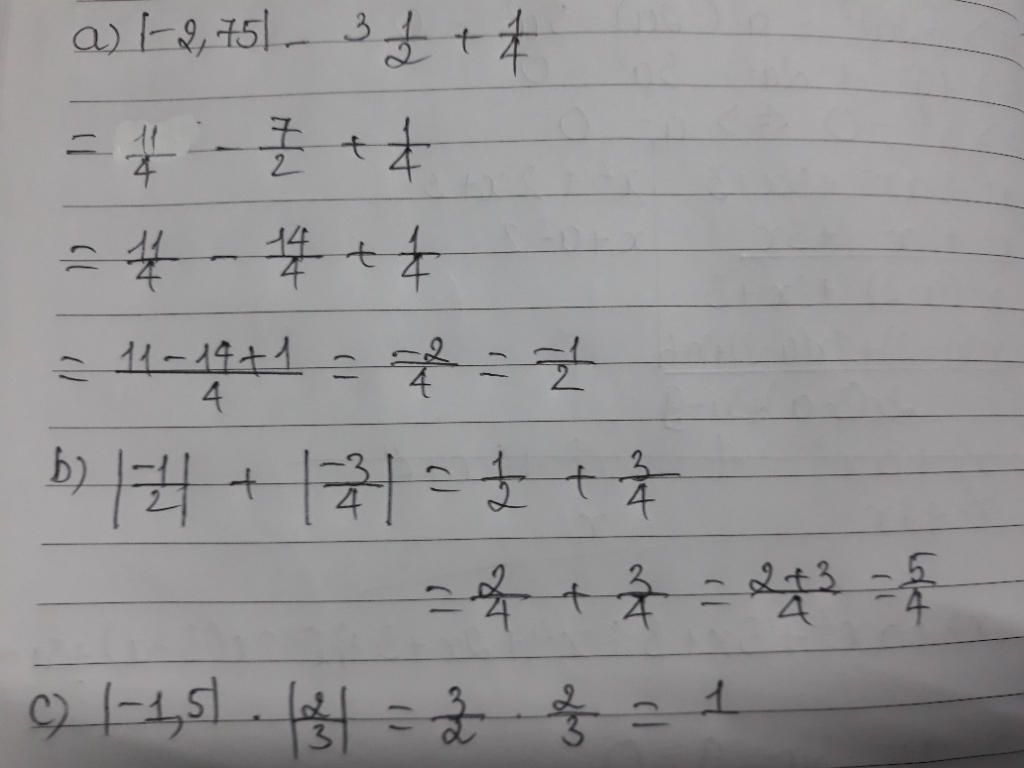 a) |-2,75| - 3 1/2 + 1/4
= 11/4 - 7/2 + 1/4
= 11/4 - 14/4 + 1/4
= 11-14+1/4 = -2/4 = -1/2
b) |-1/2| + |-3/4| = 1/2 + 3/4
= 2/4 + 3/4 = 2+3/4 = 5/4
c) |-1,5| . |2/3| = 3/2 . 2/3 = 1